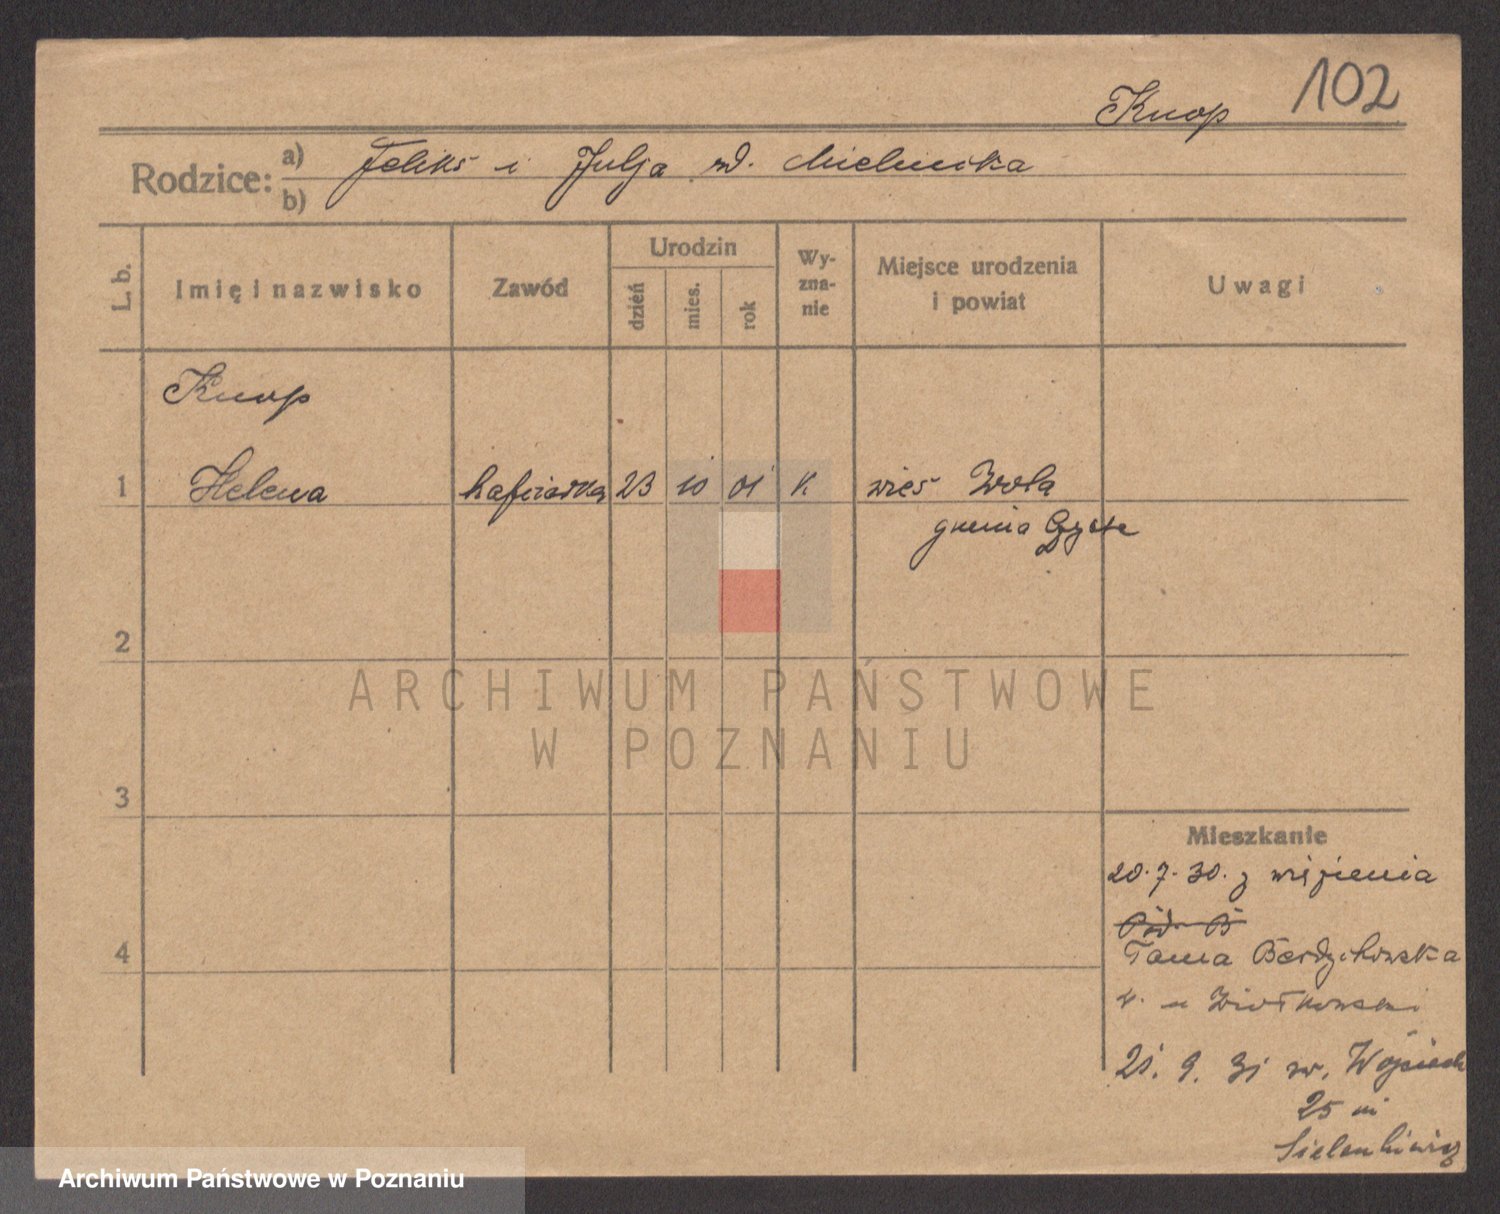 102
Knop
Rodzice: a) Feliks i Julja zd. Mielnicka
b)
L. b.
Imię i nazwisko
Zawód
Urodzin
dzień
mies.
rok
Wy-
zna-
nie
Miejsce urodzenia
i powiat
Uwagi
Knop
1 Helena hafciarka 23 10 01 K wieś Wola
gmina
2
3
4
Mieszkanie
20.7.30. z więzienia
Tama Berdychowska
21. 9. 31 św. Wojciech
25 m
Sielenkiewicz
ARCHIWUM PAŃSTWOWE
W POZNANIU
Archiwum Państwowe w Poznaniu